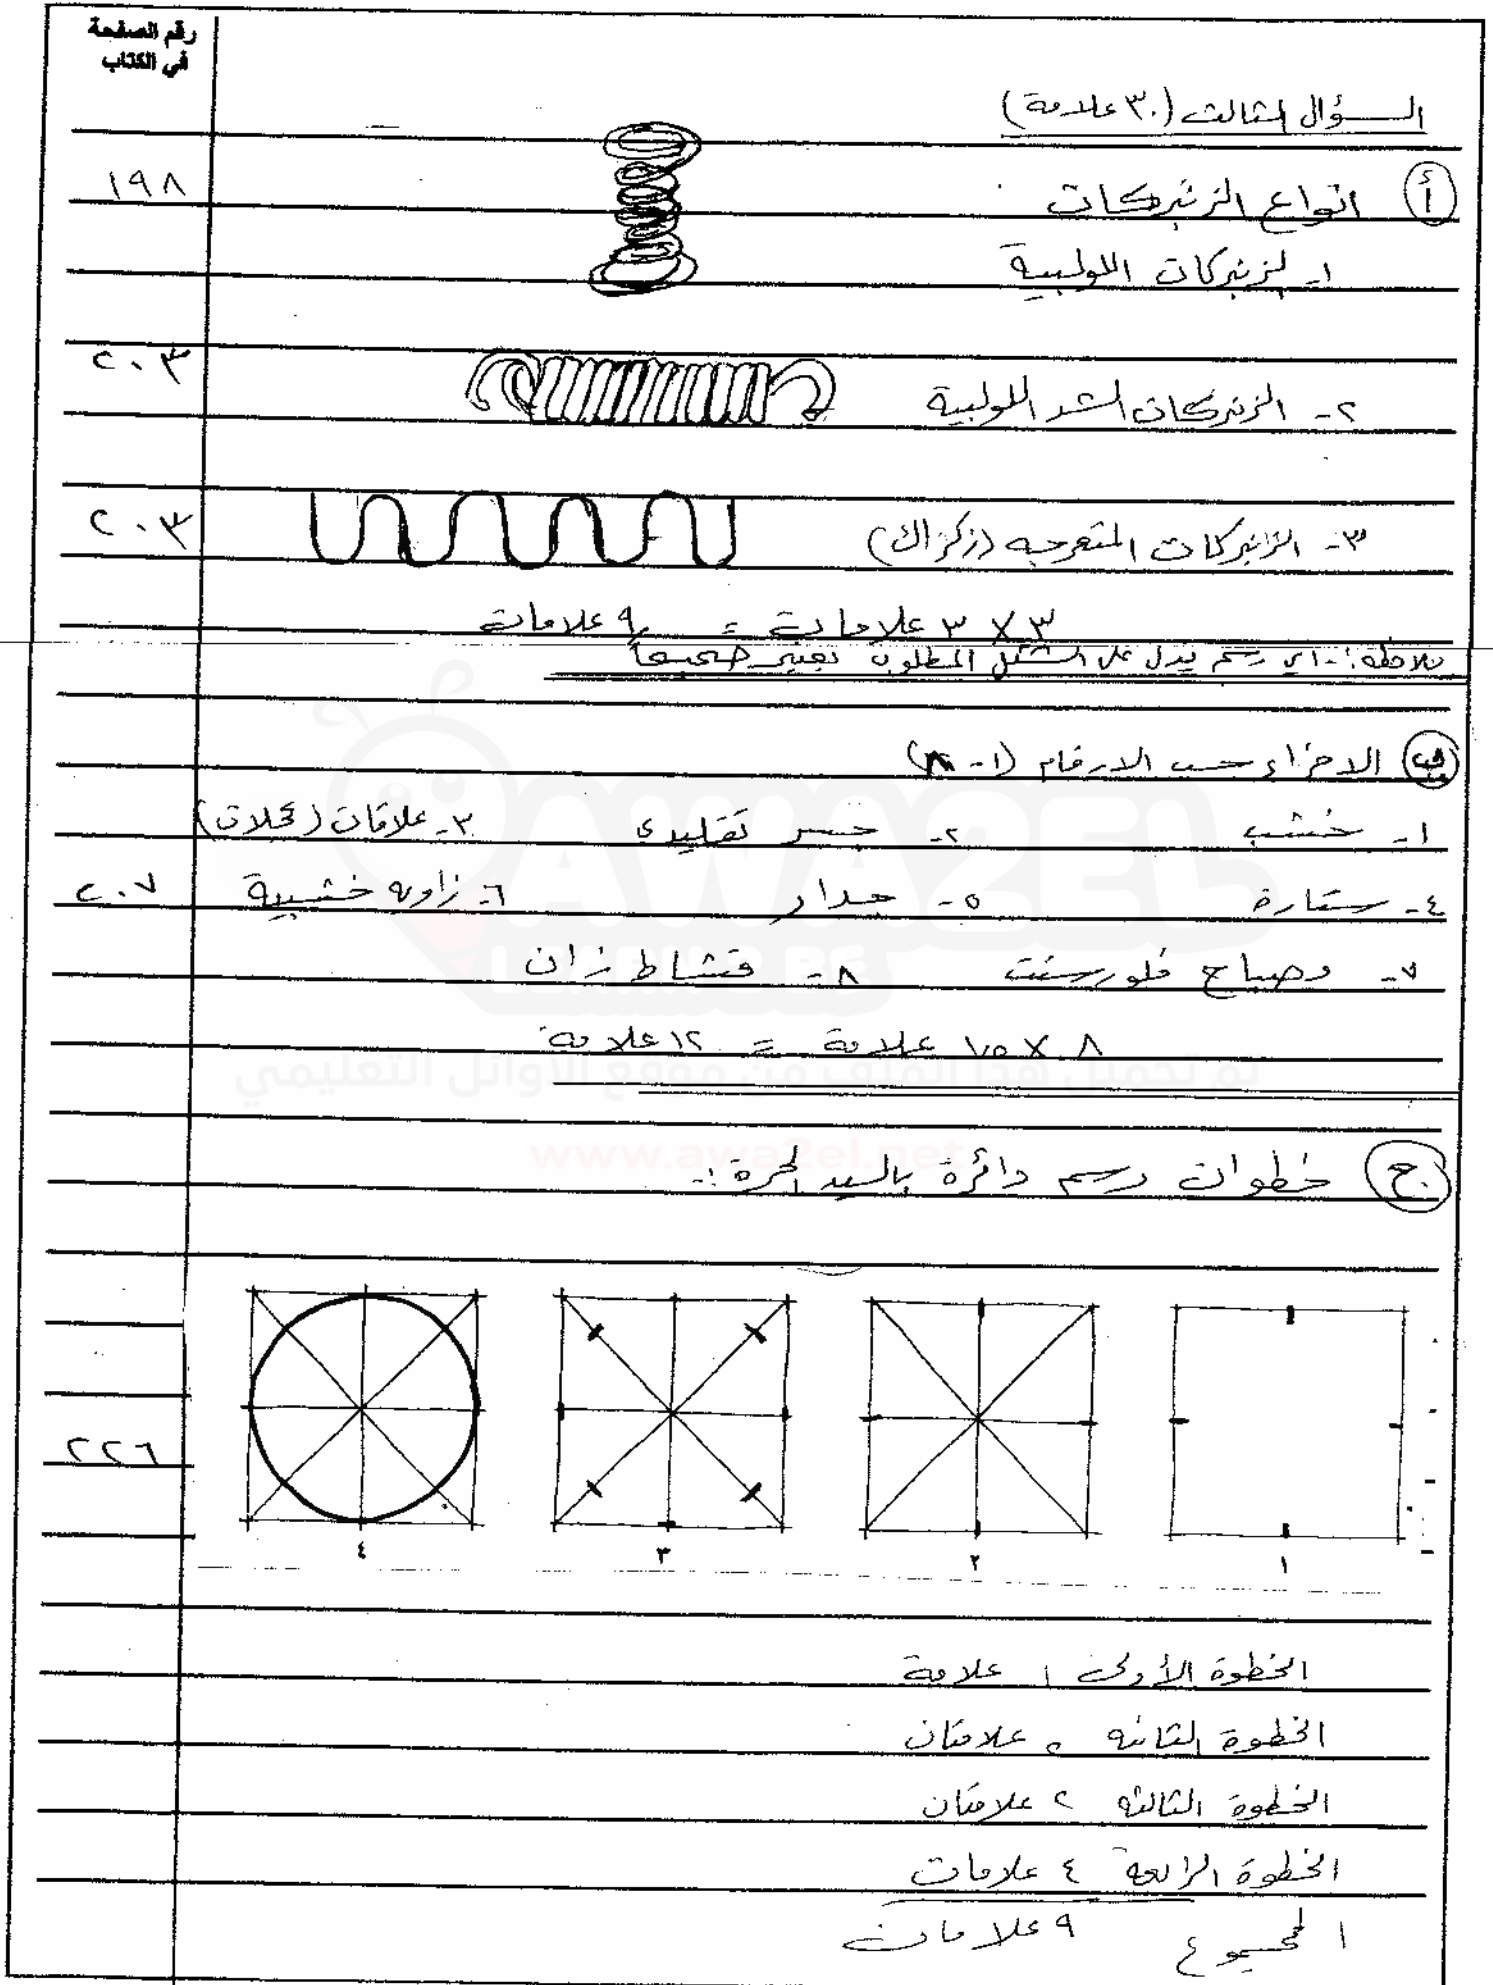 رقم الصفحة
في الكتاب
السؤال الثالث (٣٠ علامة)
أ انواع الزنبركات ١٩٨
١- الزنبركات اللولبية
٢- الزنبركات الشد اللولبية ٢٠٣
٣- الزنبركات المتعرجه (زكزاك) ٢٠٣
٣ × ٣ علامات = ٩ علامات
ملاحظة :- اي رسم يدل على الشكل المطلوب يعتبر صحيحاً
ب الاجزاء حسب الارقام (١-٨)
١- خشب ٢- جسر تقليدي ٣- علاقات (عجلات)
٤- ستارة ٥- جدار ٦- زاوية خشبية ٢٠٧
٧- مصباح فلورسنت ٨- قشاط زان
٨ × ١٫٥ علامة = ١٢ علامة
تم تحميل هذا الملف من موقع الأوائل التعليمي
AWA2EL
LEARN 2 BE
www.awa2el.net
ج خطوات رسم دائرة باليد الحرة :-
٢٢٦
١ ٢ ٣ ٤
الخطوة الأولى ١ علامة
الخطوة الثانيه ٢ علامتان
الخطوة الثالثه ٢ علامتان
الخطوة الرابعة ٤ علامات
المجموع ٩ علامات